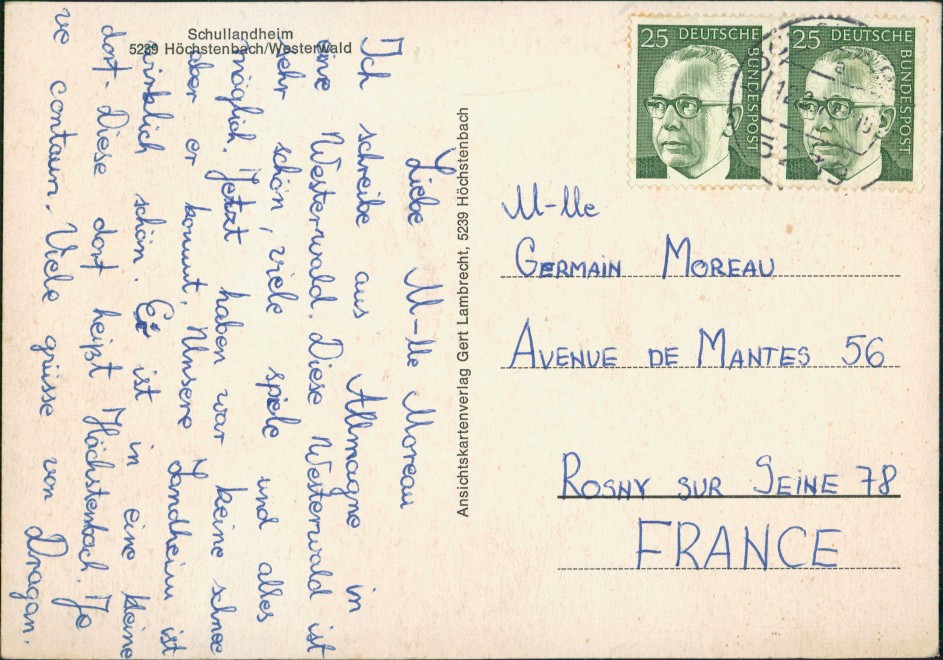 Schullandheim
5239 Höchstenbach/Westerwald
Liebe M-lle Moreau
Ich schreibe aus Allmagne in
eine Westerwald. Diese Westerwald ist
sehr schön, viele spiele und alles
möglich. Jetzt haben war keine schnee
aber er kommt. Unsere Landheim ist
wirklich schön. Er ist in eine kleine
dorf. Diese dorf heißt Höchstenbach. Je
ve contaun. Viele grüsse von Dragan.
Ansichtskartenverlag Gert Lambrecht, 5239 Höchstenbach
25 DEUTSCHE
BUNDESPOST
25 DEUTSCHE
BUNDESPOST
M-lle
GERMAIN MOREAU
AVENUE DE MANTES 56
ROSNY SUR SEINE 78
FRANCE